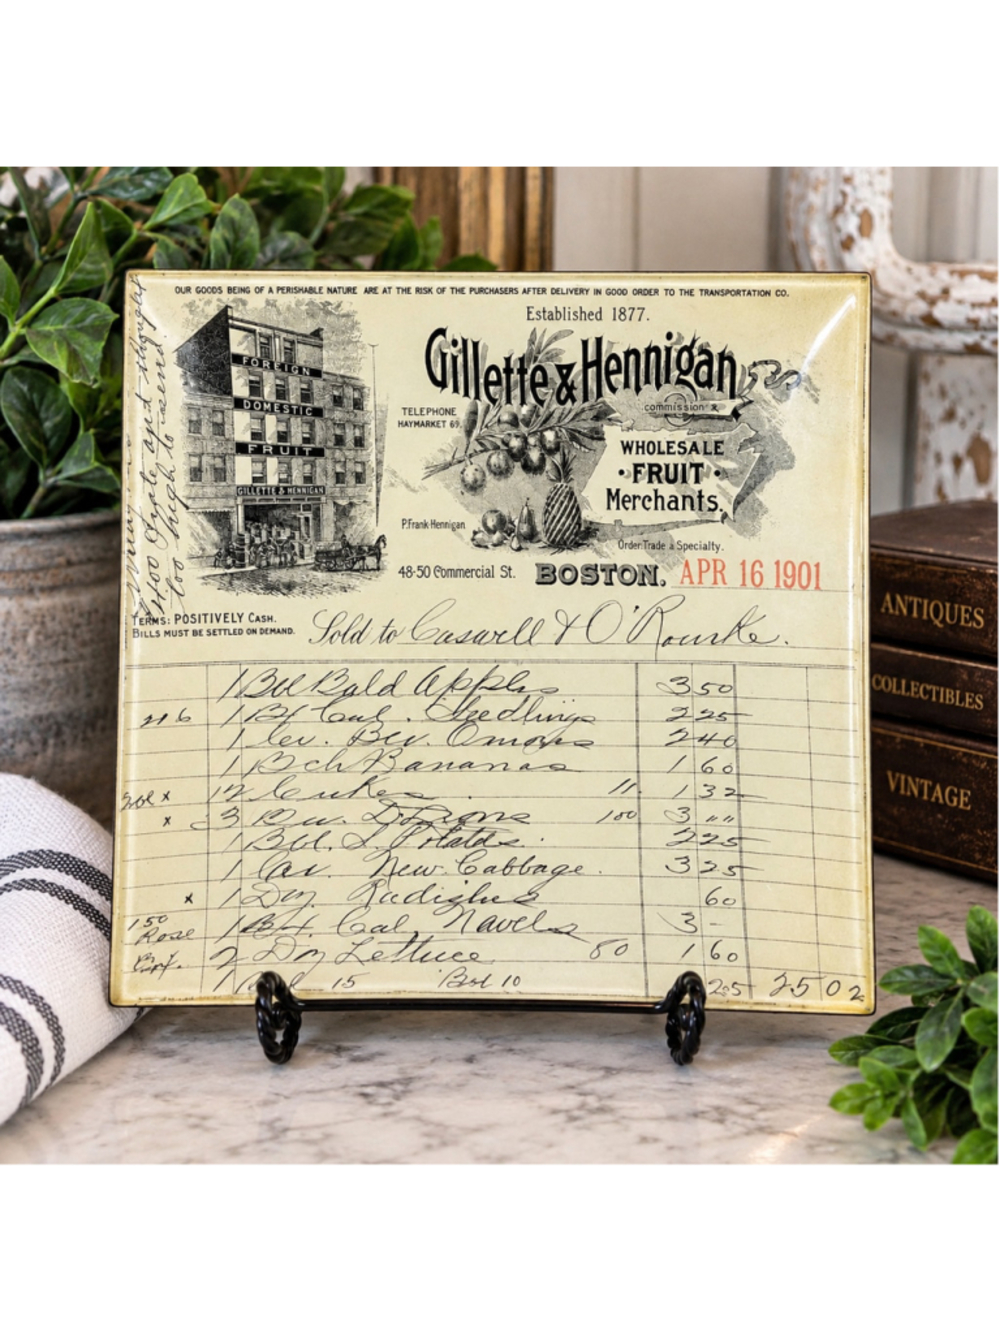 OUR GOODS BEING OF A PERISHABLE NATURE ARE AT THE RISK OF THE PURCHASERS AFTER DELIVERY IN GOOD ORDER TO THE TRANSPORTATION CO.
Established 1877.
Gillette & Hennigan
commission
FOREIGN
DOMESTIC
FRUIT
GILLETTE & HENNIGAN
TELEPHONE
HAYMARKET 69.
WHOLESALE
• FRUIT •
Merchants.
P.Frank Hennigan
Order Trade a Specialty.
48-50 Commercial St. BOSTON. APR 16 1901
and thought
too high to send
TERMS: POSITIVELY CASH.
BILLS MUST BE SETTLED ON DEMAND.
Sold to Caswell & O'Rourke.
1 Bbl Bald Apples 350
216 1 Bx Cal. Seedlings 225
1 Bu. Onions 240
1 Bch Bananas 160
x 12 Cukes 11 132
x 3 Bu. 100 3 " "
1 Bbl. S. Potatoes 225
1 New Cabbage. 325
x 1 Doz Radishes 60
150 1 Bx. Cal. Navels 3 -
Rose
2 Doz Lettuce 80 1 60
1 15 Bbl 10 25 2502
ANTIQUES
COLLECTIBLES
VINTAGE